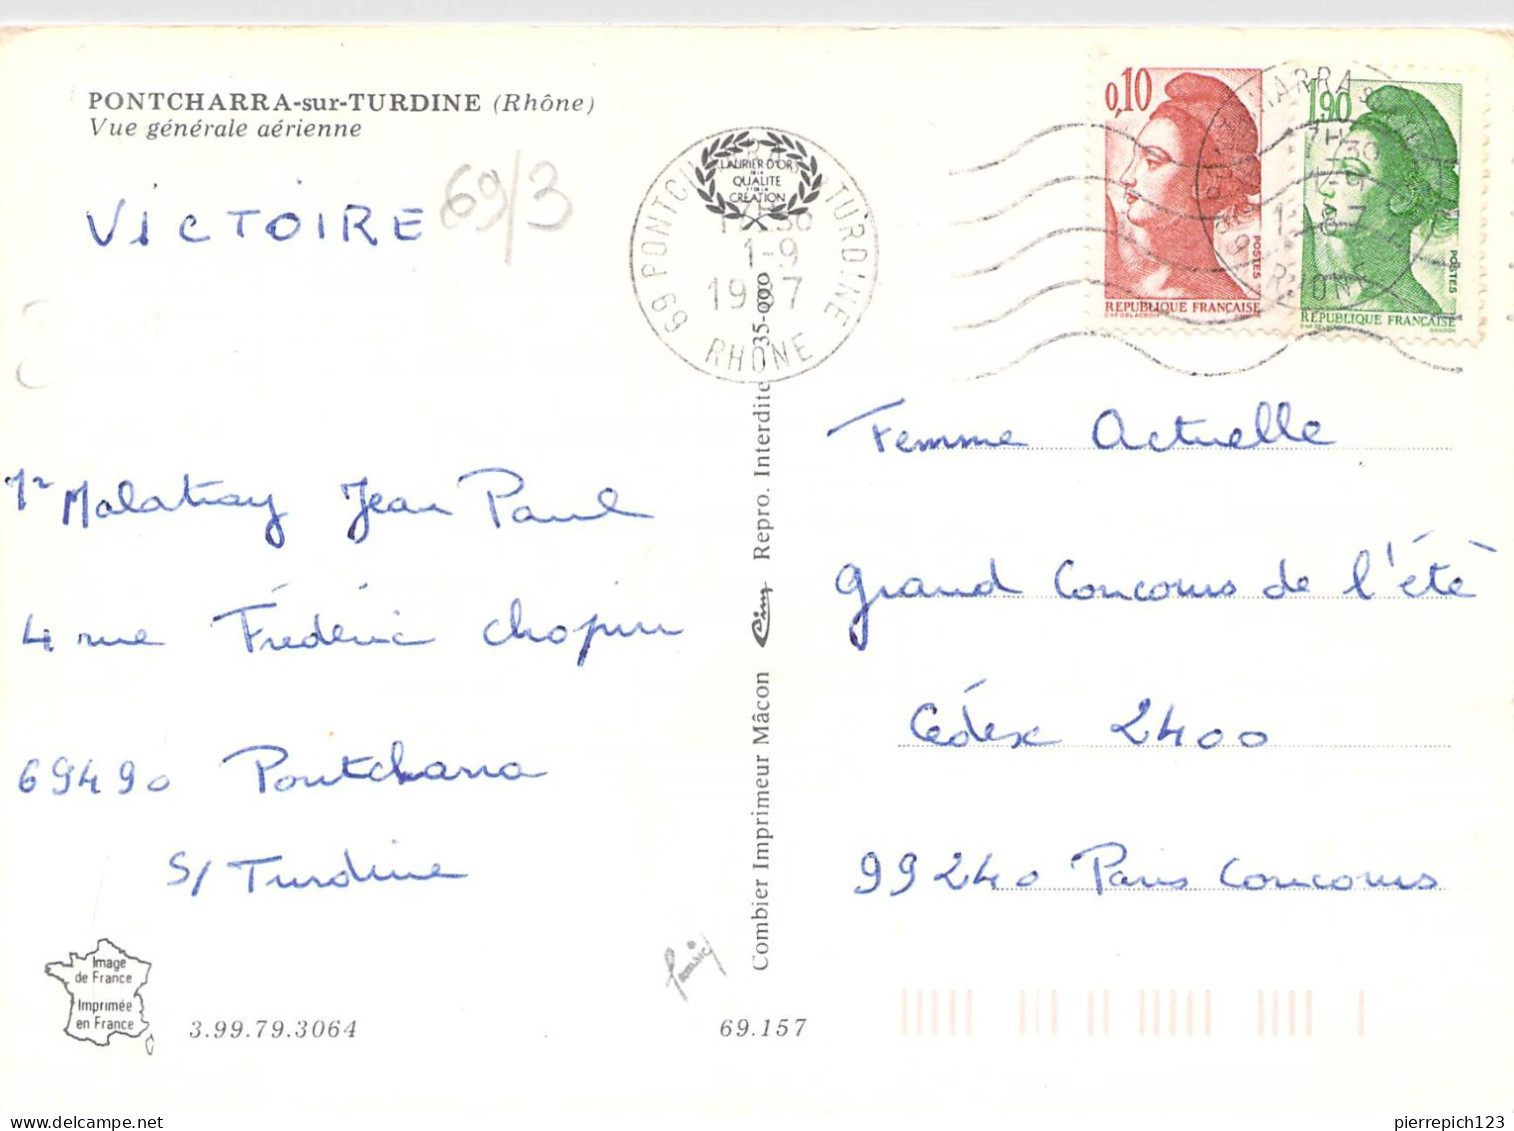 PONTCHARRA-sur-TURDINE (Rhône)
Vue générale aérienne
VICTOIRE
69/3
LAURIER D'OR
DE LA
QUALITE
ET DE LA
CREATION
69 PONTCHARRA TURDINE
1-9
1987
RHÔNE
0,10
POSTES
REPUBLIQUE FRANÇAISE
1,90
POSTES
REPUBLIQUE FRANÇAISE
Mr Malatray Jean Paul
4 rue Frédéric chopin
69490 Pontcharra
s/ Turdine
Combier Imprimeur Mâcon Cim Repro. Interdite 35-000
Femme Actuelle
grand Concours de l'été
Cédex 2400
99240 Paris Concours
Image
de France
Imprimée
en France
3.99.79.3064
69.157
pierrepich123